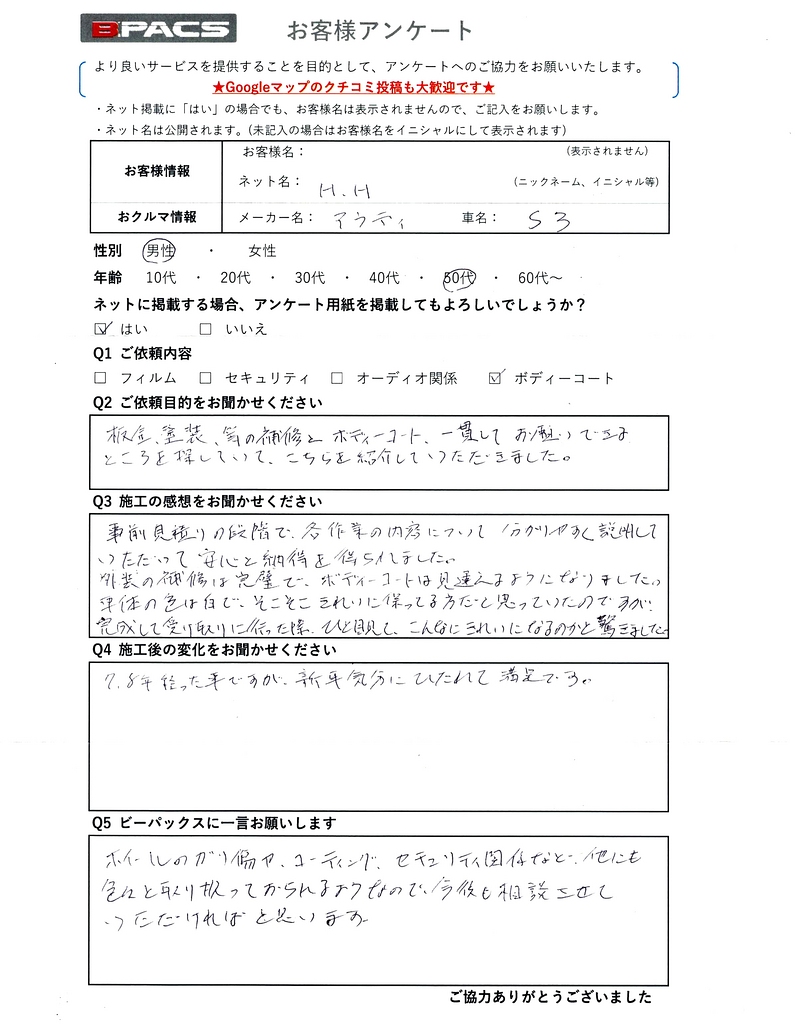 BPACS お客様アンケート
より良いサービスを提供することを目的として、アンケートへのご協力をお願いいたします。
★Googleマップのクチコミ投稿も大歓迎です★
・ネット掲載に「はい」の場合でも、お客様名は表示されませんので、ご記入をお願いします。
・ネット名は公開されます。(未記入の場合はお客様名をイニシャルにして表示されます)
お客様情報 お客様名： (表示されません)
ネット名： H.H (ニックネーム、イニシャル等)
おクルマ情報 メーカー名： アウディ 車名： S3
性別 男性 ・ 女性
年齢 10代 ・ 20代 ・ 30代 ・ 40代 ・ 50代 ・ 60代～
ネットに掲載する場合、アンケート用紙を掲載してもよろしいでしょうか？
☑ はい □ いいえ
Q1 ご依頼内容
□ フィルム □ セキュリティ □ オーディオ関係 ☑ ボディーコート
Q2 ご依頼目的をお聞かせください
板金、塗装、傷の補修と ボディーコート、一貫して お願いできる
ところを探していて、こちらを紹介していただきました。
Q3 施工の感想をお聞かせください
事前見積りの段階で、各作業の内容について 分かりやすく説明して
いただいて 安心と納得を得られました。
外装の補修は完璧で、ボディーコートは見違えるようになりました。
車体の色は白で、そこそこ きれいに保ってる方だと思っていたのですが、
完成して受け取りに行った際、ひと目見て、こんなにきれいになるのかと驚きました。
Q4 施工後の変化をお聞かせください
7,8年経った車ですが、新車気分に ひたれて 満足です。
Q5 ビーパックスに一言お願いします
ホイールのガリ傷や、コーティング、セキュリティ関係など、他にも
色々と取り扱っておられるようなので、今後も相談させて
いただければ と思います
ご協力ありがとうございました